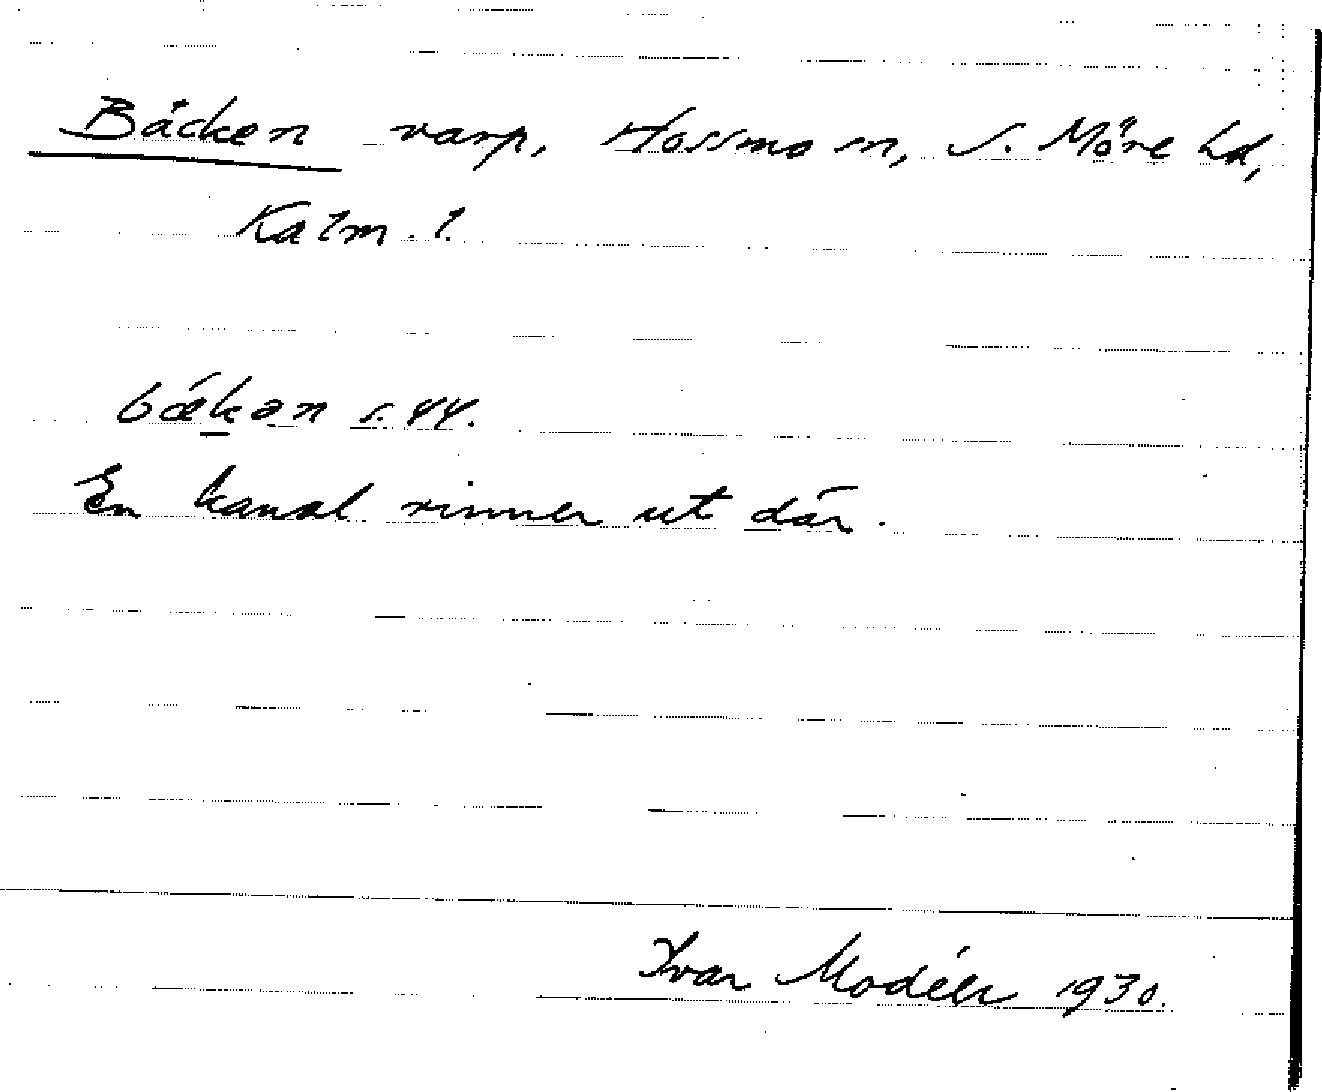 Bäcken varp, Hossmo sn, S. Möre hd,
Kalm. l.
bǽkan s. 44.
En kanal rinner ut där.
Ivar Modéer 1930.